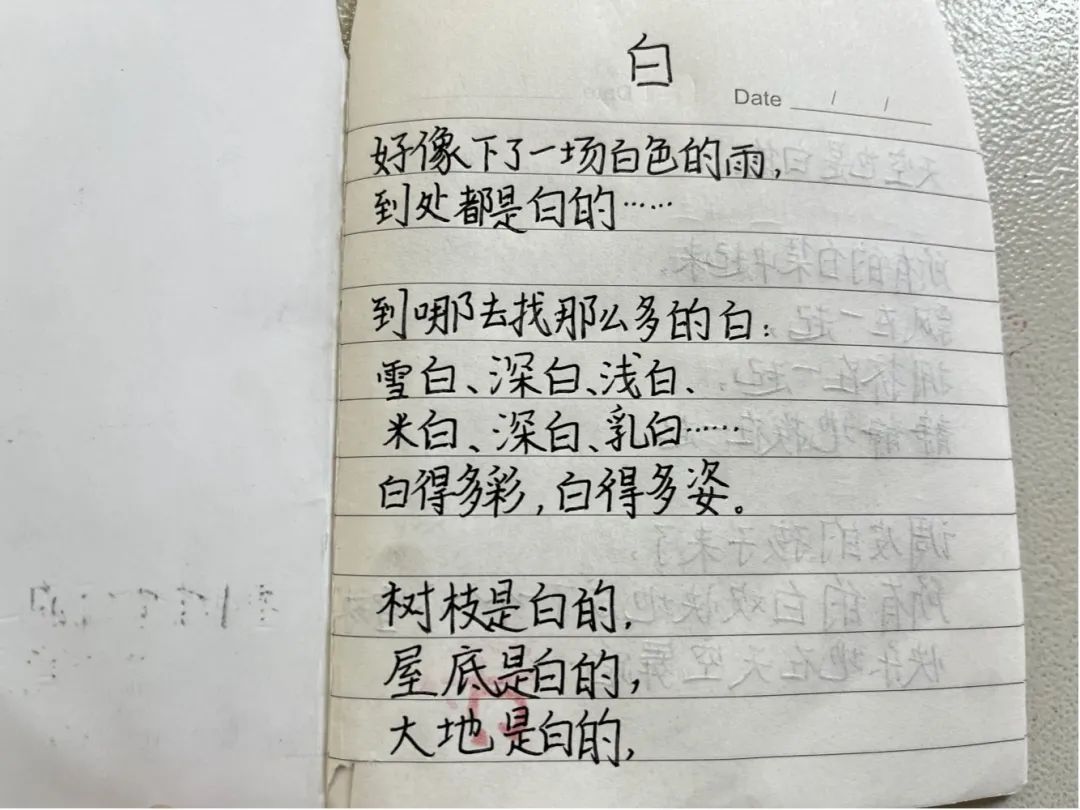 白
Date / /
好像下了一场白色的雨,
到处都是白的……
到哪去找那么多的白:
雪白、深白、浅白、
米白、深白、乳白……
白得多彩,白得多姿。
树枝是白的,
屋底是白的,
大地是白的,